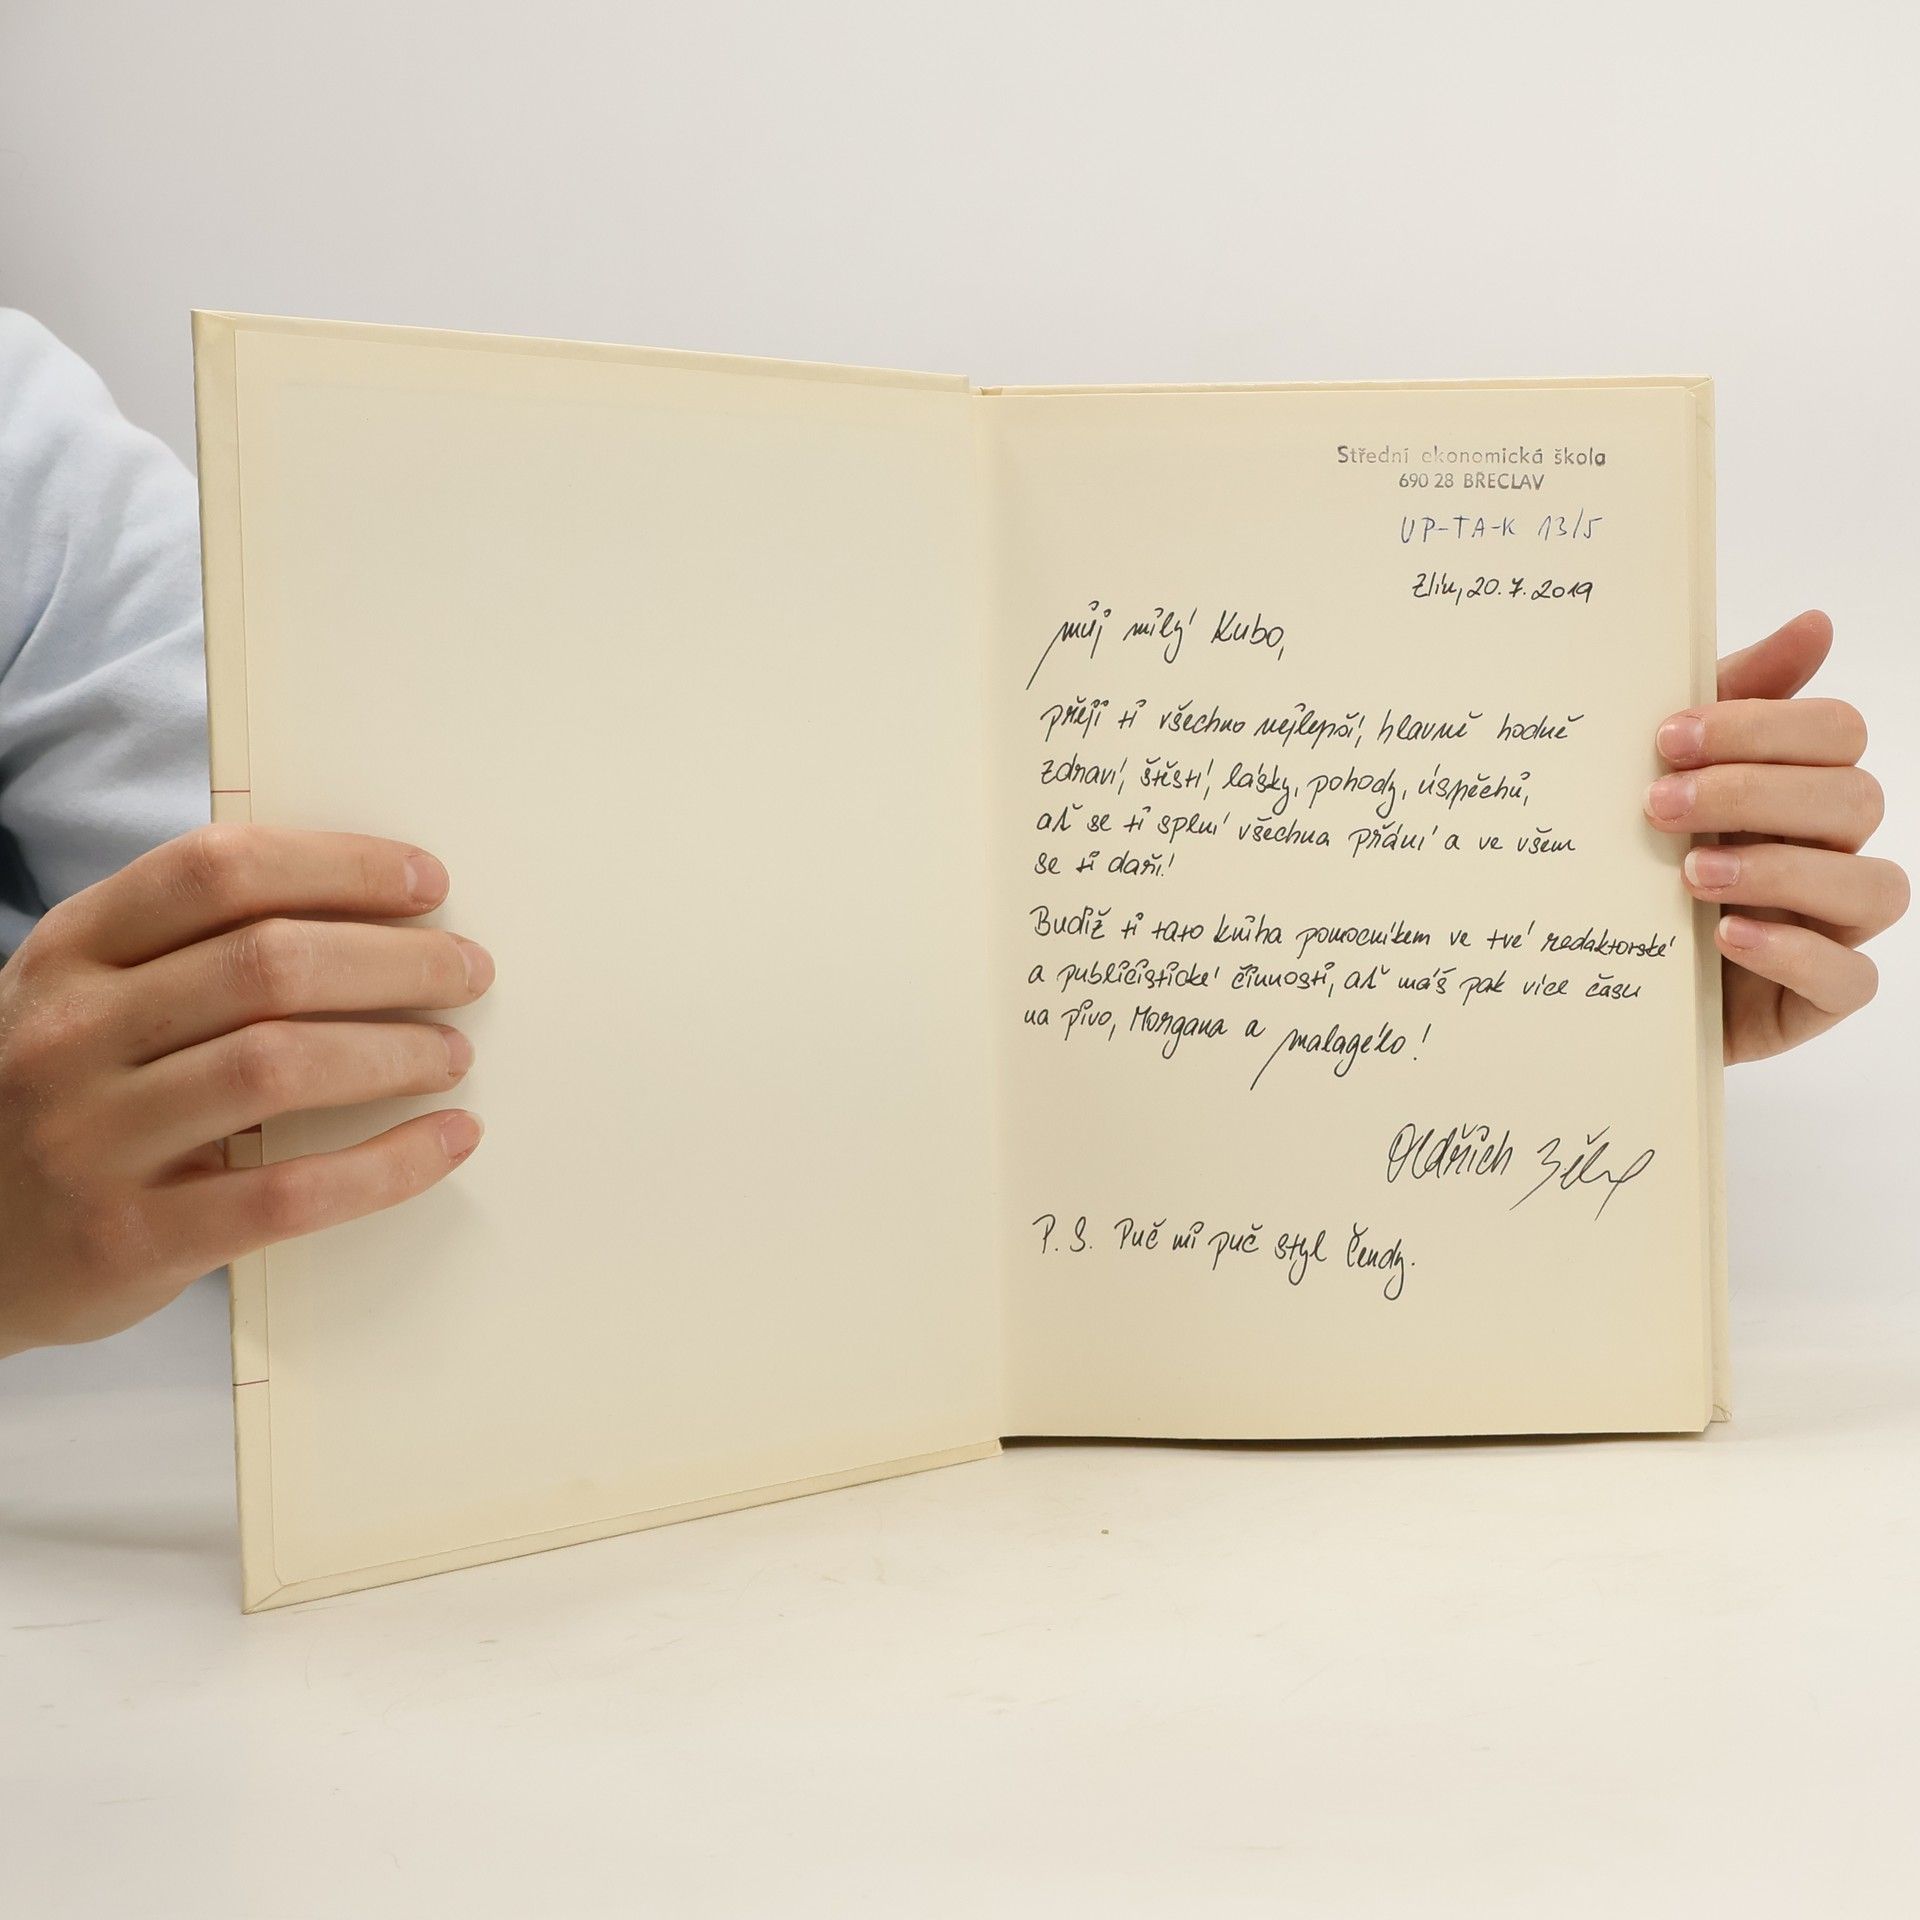 Střední ekonomická škola
690 28 BŘECLAV
UP-TA-K 13/5
Zlín, 20. 7. 2019
můj milý Kubo,
přeji ti všechno nejlepší, hlavně hodně
zdraví, štěstí, lásky, pohody, úspěchů,
ať se ti splní všechna přání a ve všem
se ti daří!
Budiž ti tato kniha pomocníkem ve tvé redaktorské
a publicistické činnosti, ať máš pak více času
na pivo, Morgana a malagélo!
Oldřich
P. S. Puč mi puč styl Čendy.